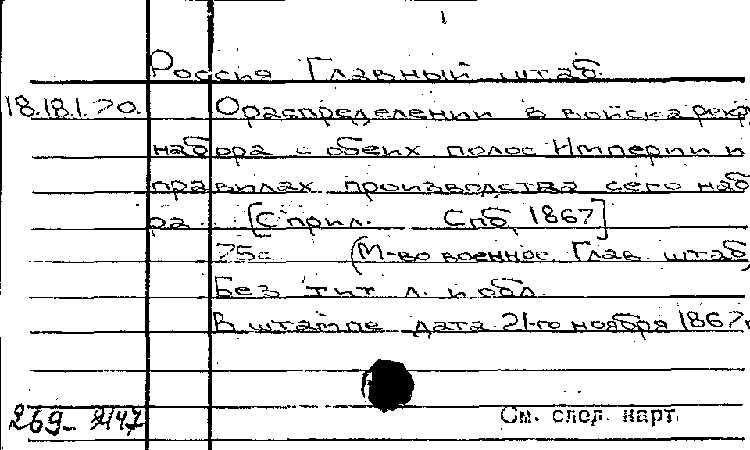 1
Россия Главный штаб.
18.181.70. О распределении в войска рекр
набора с обеих полос Империи и
правилах производства сего наб
ра [С прил. Спб, 1867]
75с (М-во военное. Глав штаб)
Без тит л. и обл.
В штампе дата 21-го ноября 1867г
269-2147 См. след. карт.